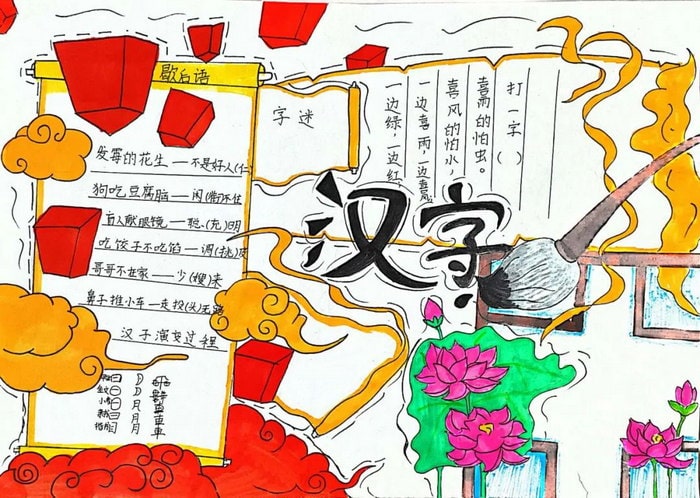 歇后语
发霉的花生——不是好人(仁)
狗吃豆腐脑——闲(衔)不住
盲人献眼镜——聪(充)明
吃饺子不吃馅——调(挑)皮
哥哥不在家——少(嫂)来
鼻子推小车——走投(头)无路
汉子演变过程
字迷
打一字( )
喜雨的怕虫。
喜风的怕水，
一边喜雨，一边喜风，
一边绿，一边红，
汉字
日
月
月
月
車
車